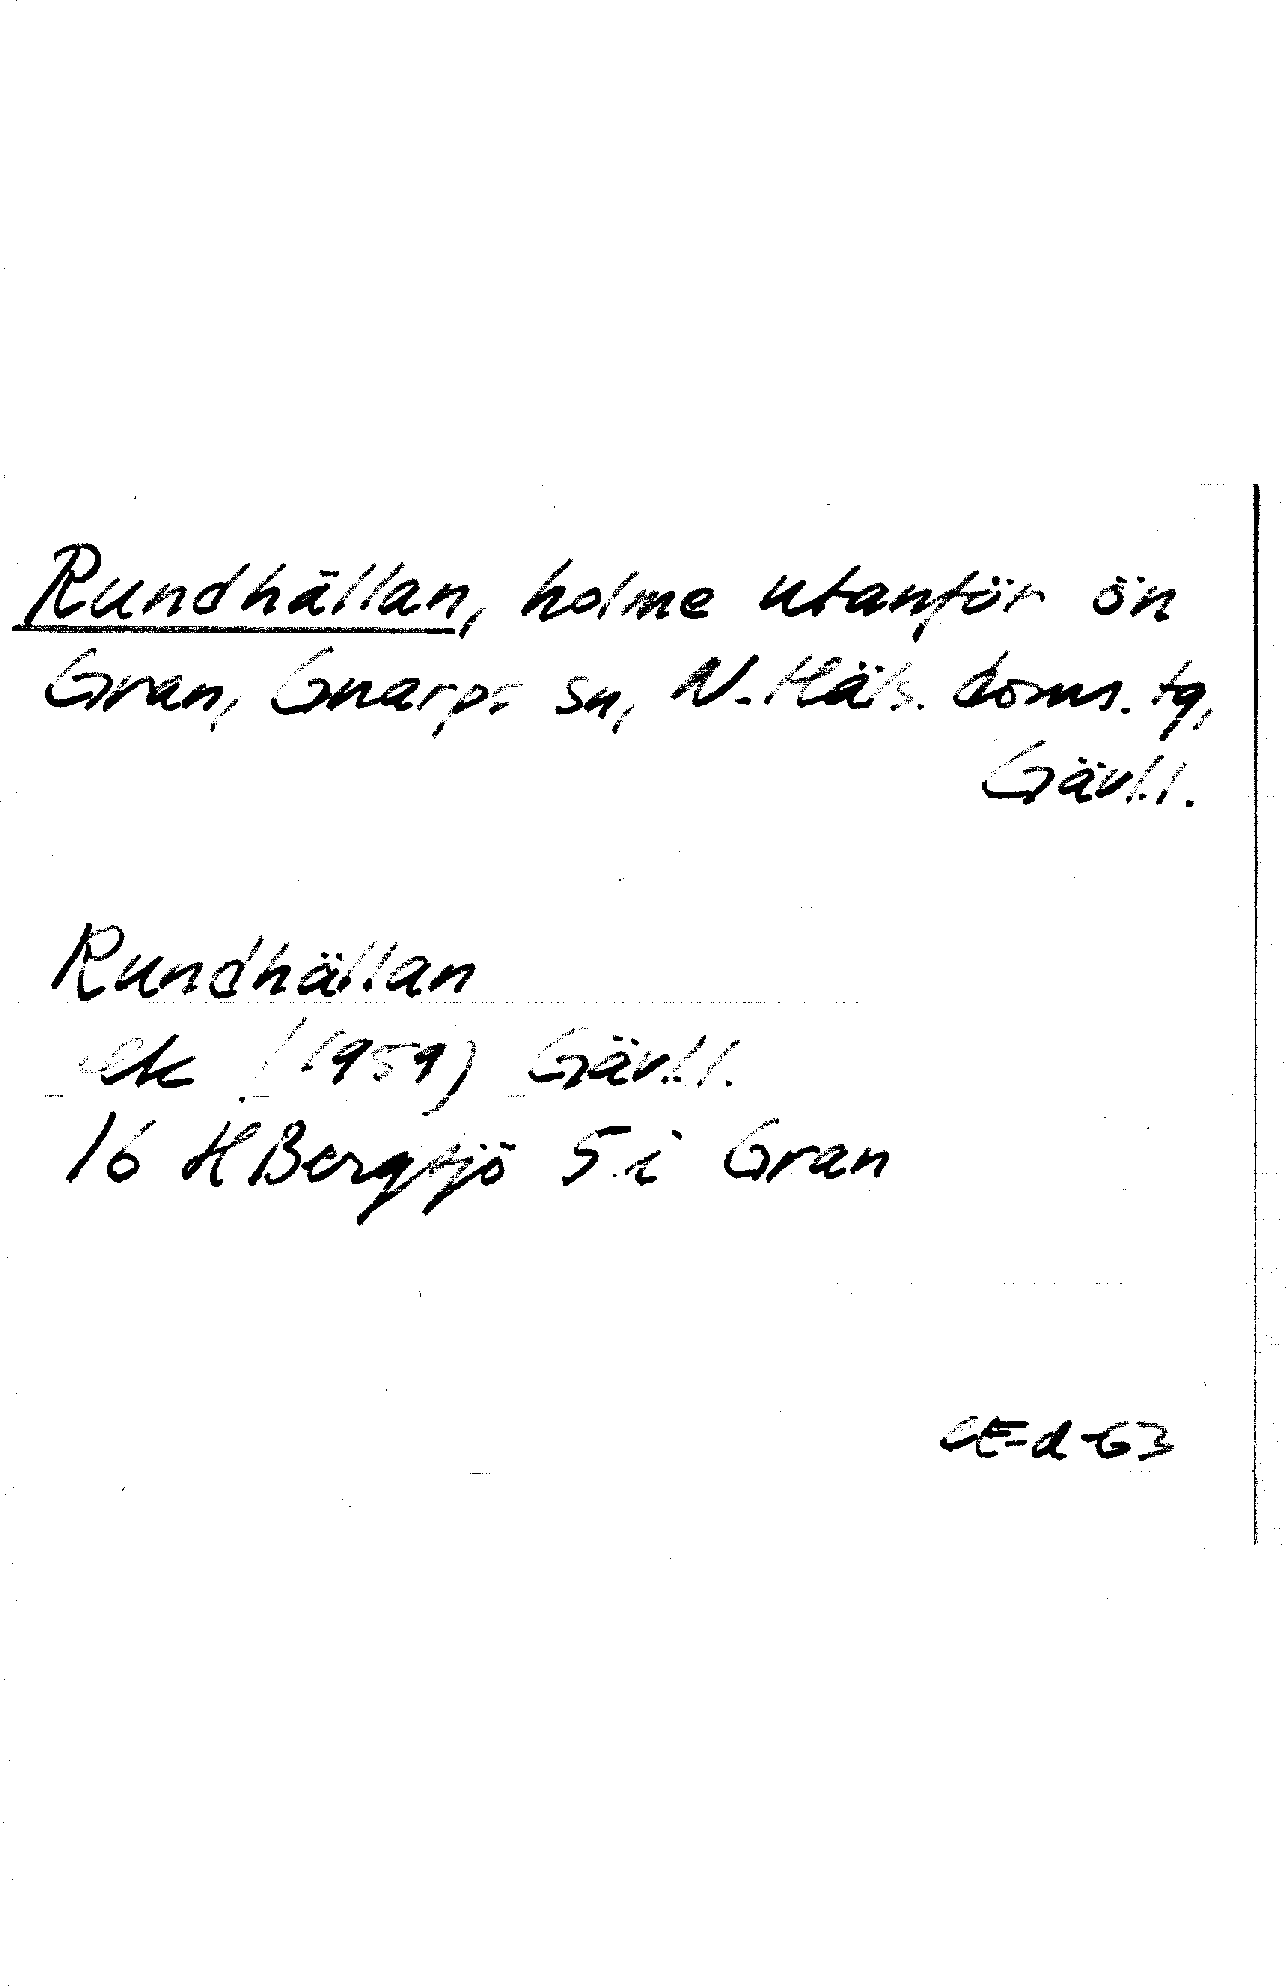 Rundhällan, holme utanför ön
Gran, Gnarps sn, N. Häls. doms. tg,
Gävl.l.
Rundhällan
ek / (1959) Gävl.l.
16 H Bergsjö 5 i Gran
CE-d-63